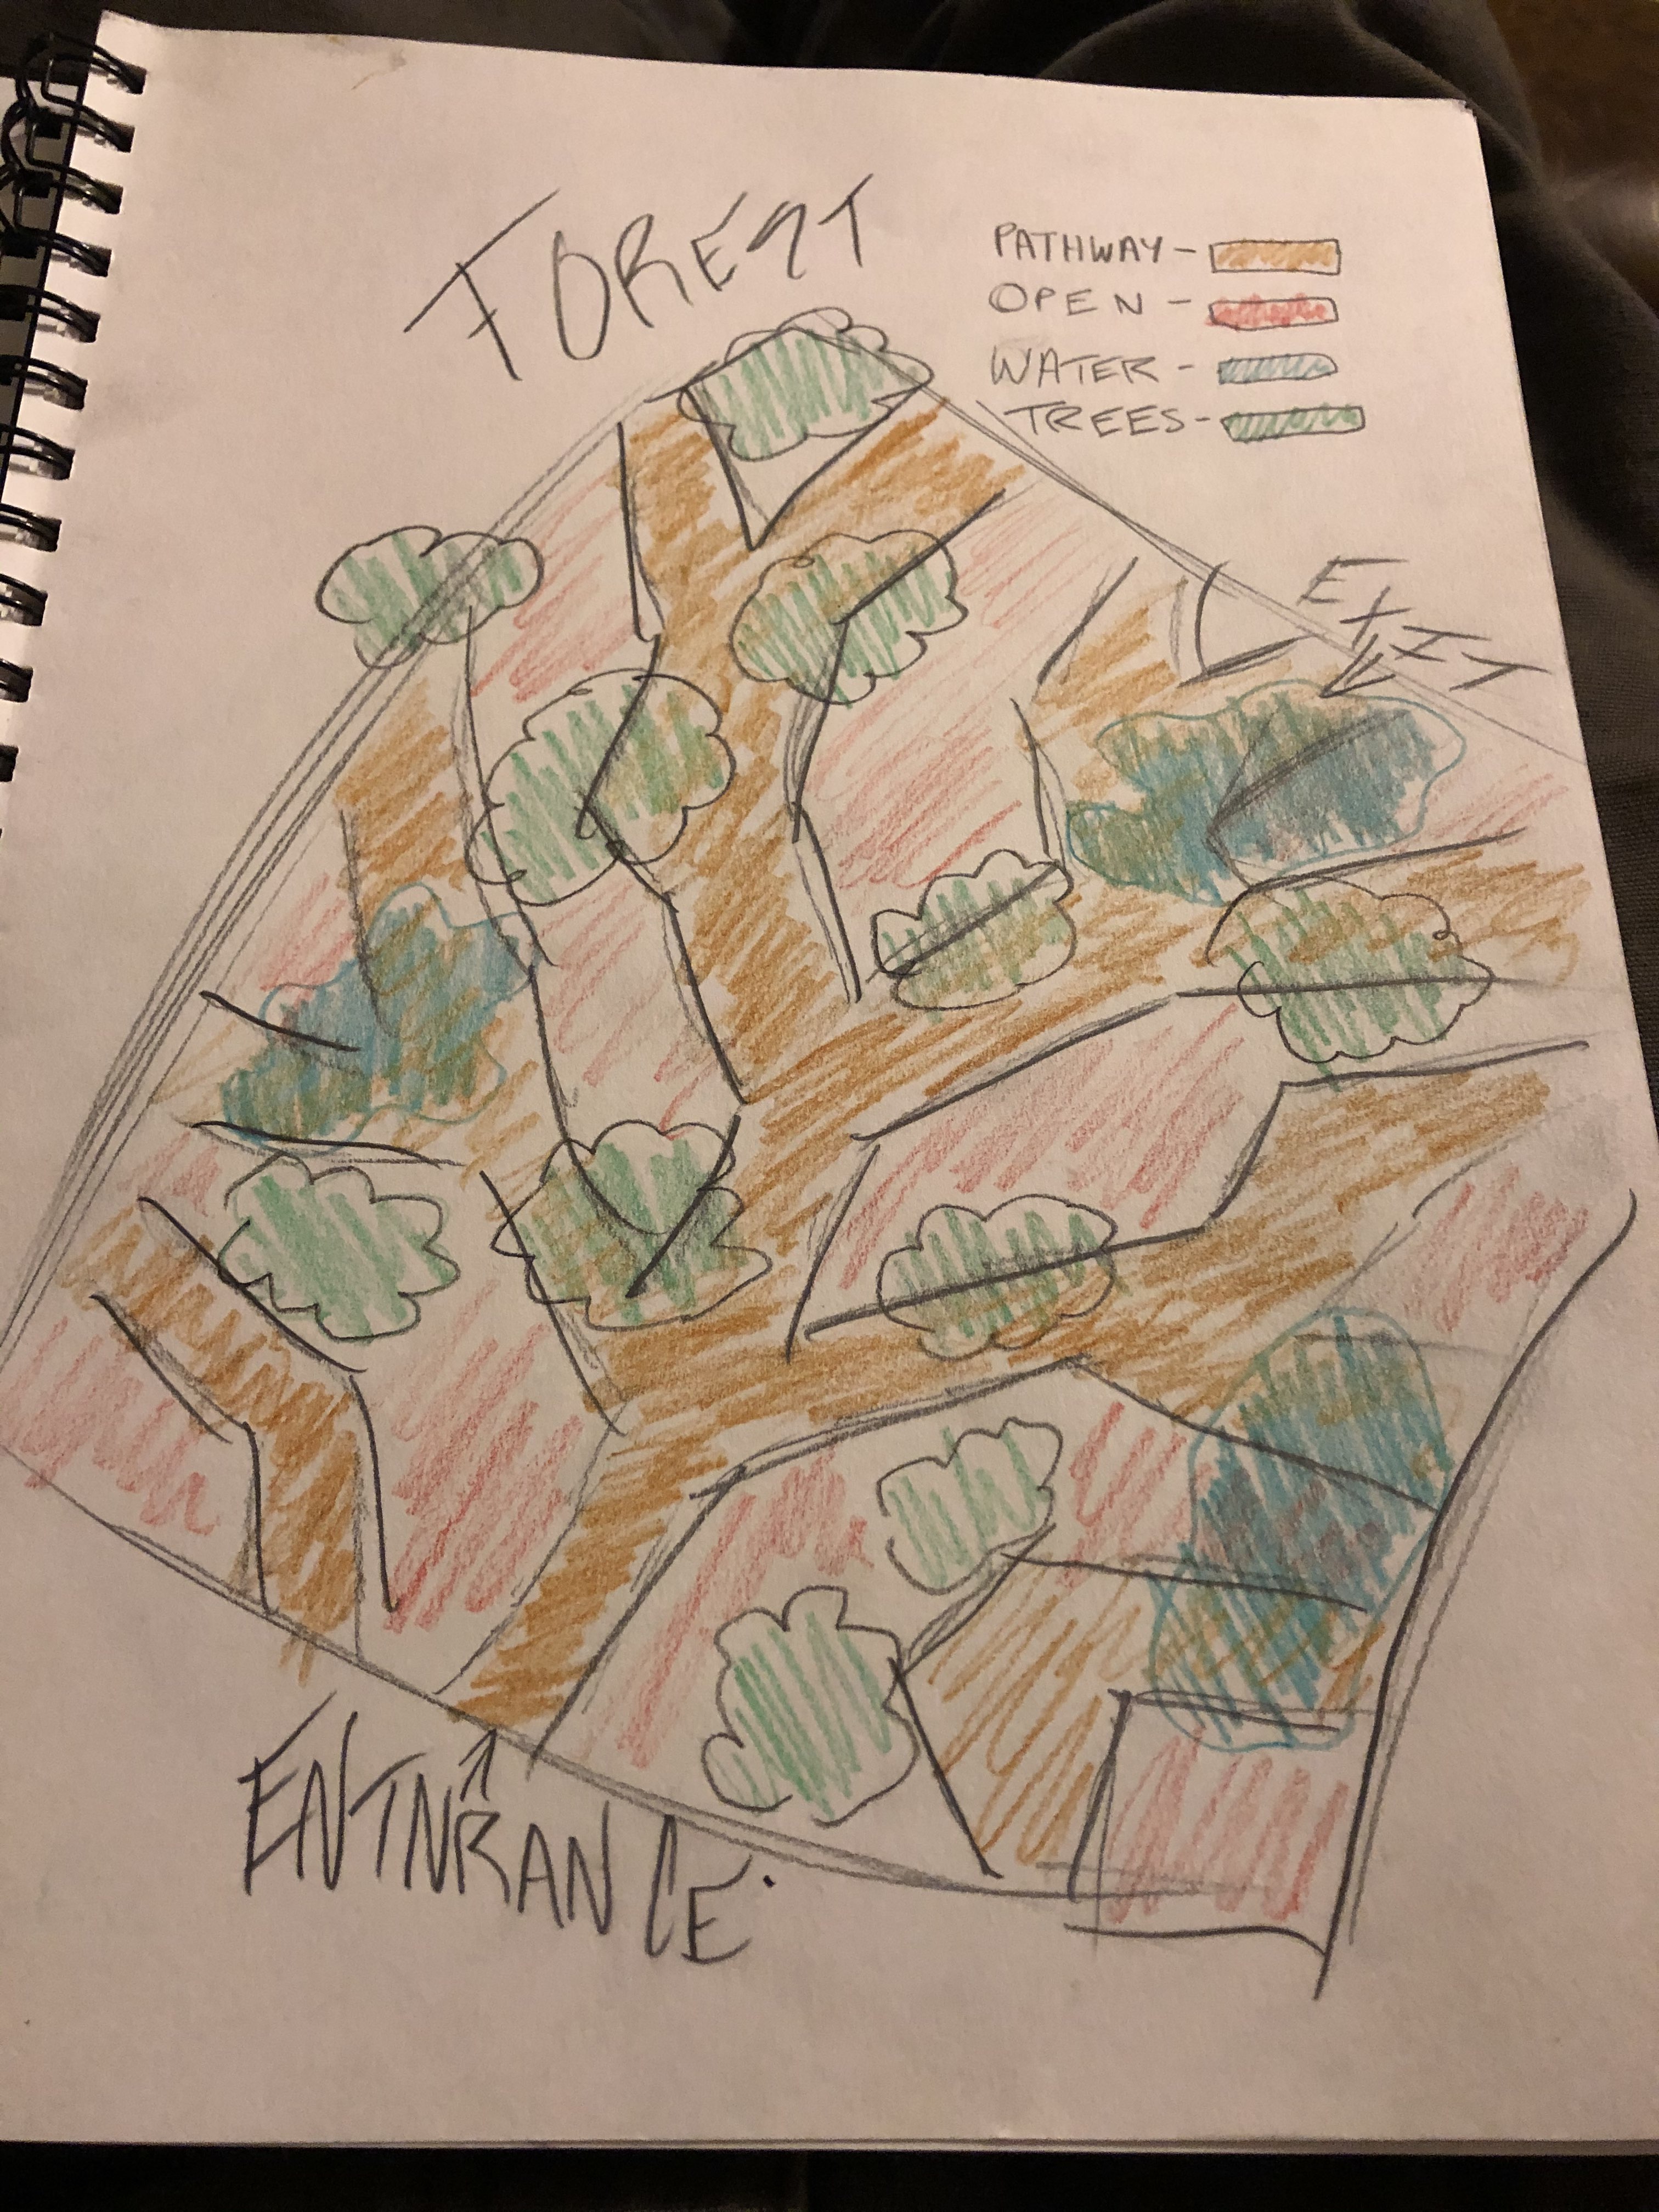 FOREST
PATHWAY-
OPEN -
WATER -
TREES-
EXIT
ENTNRANCE.